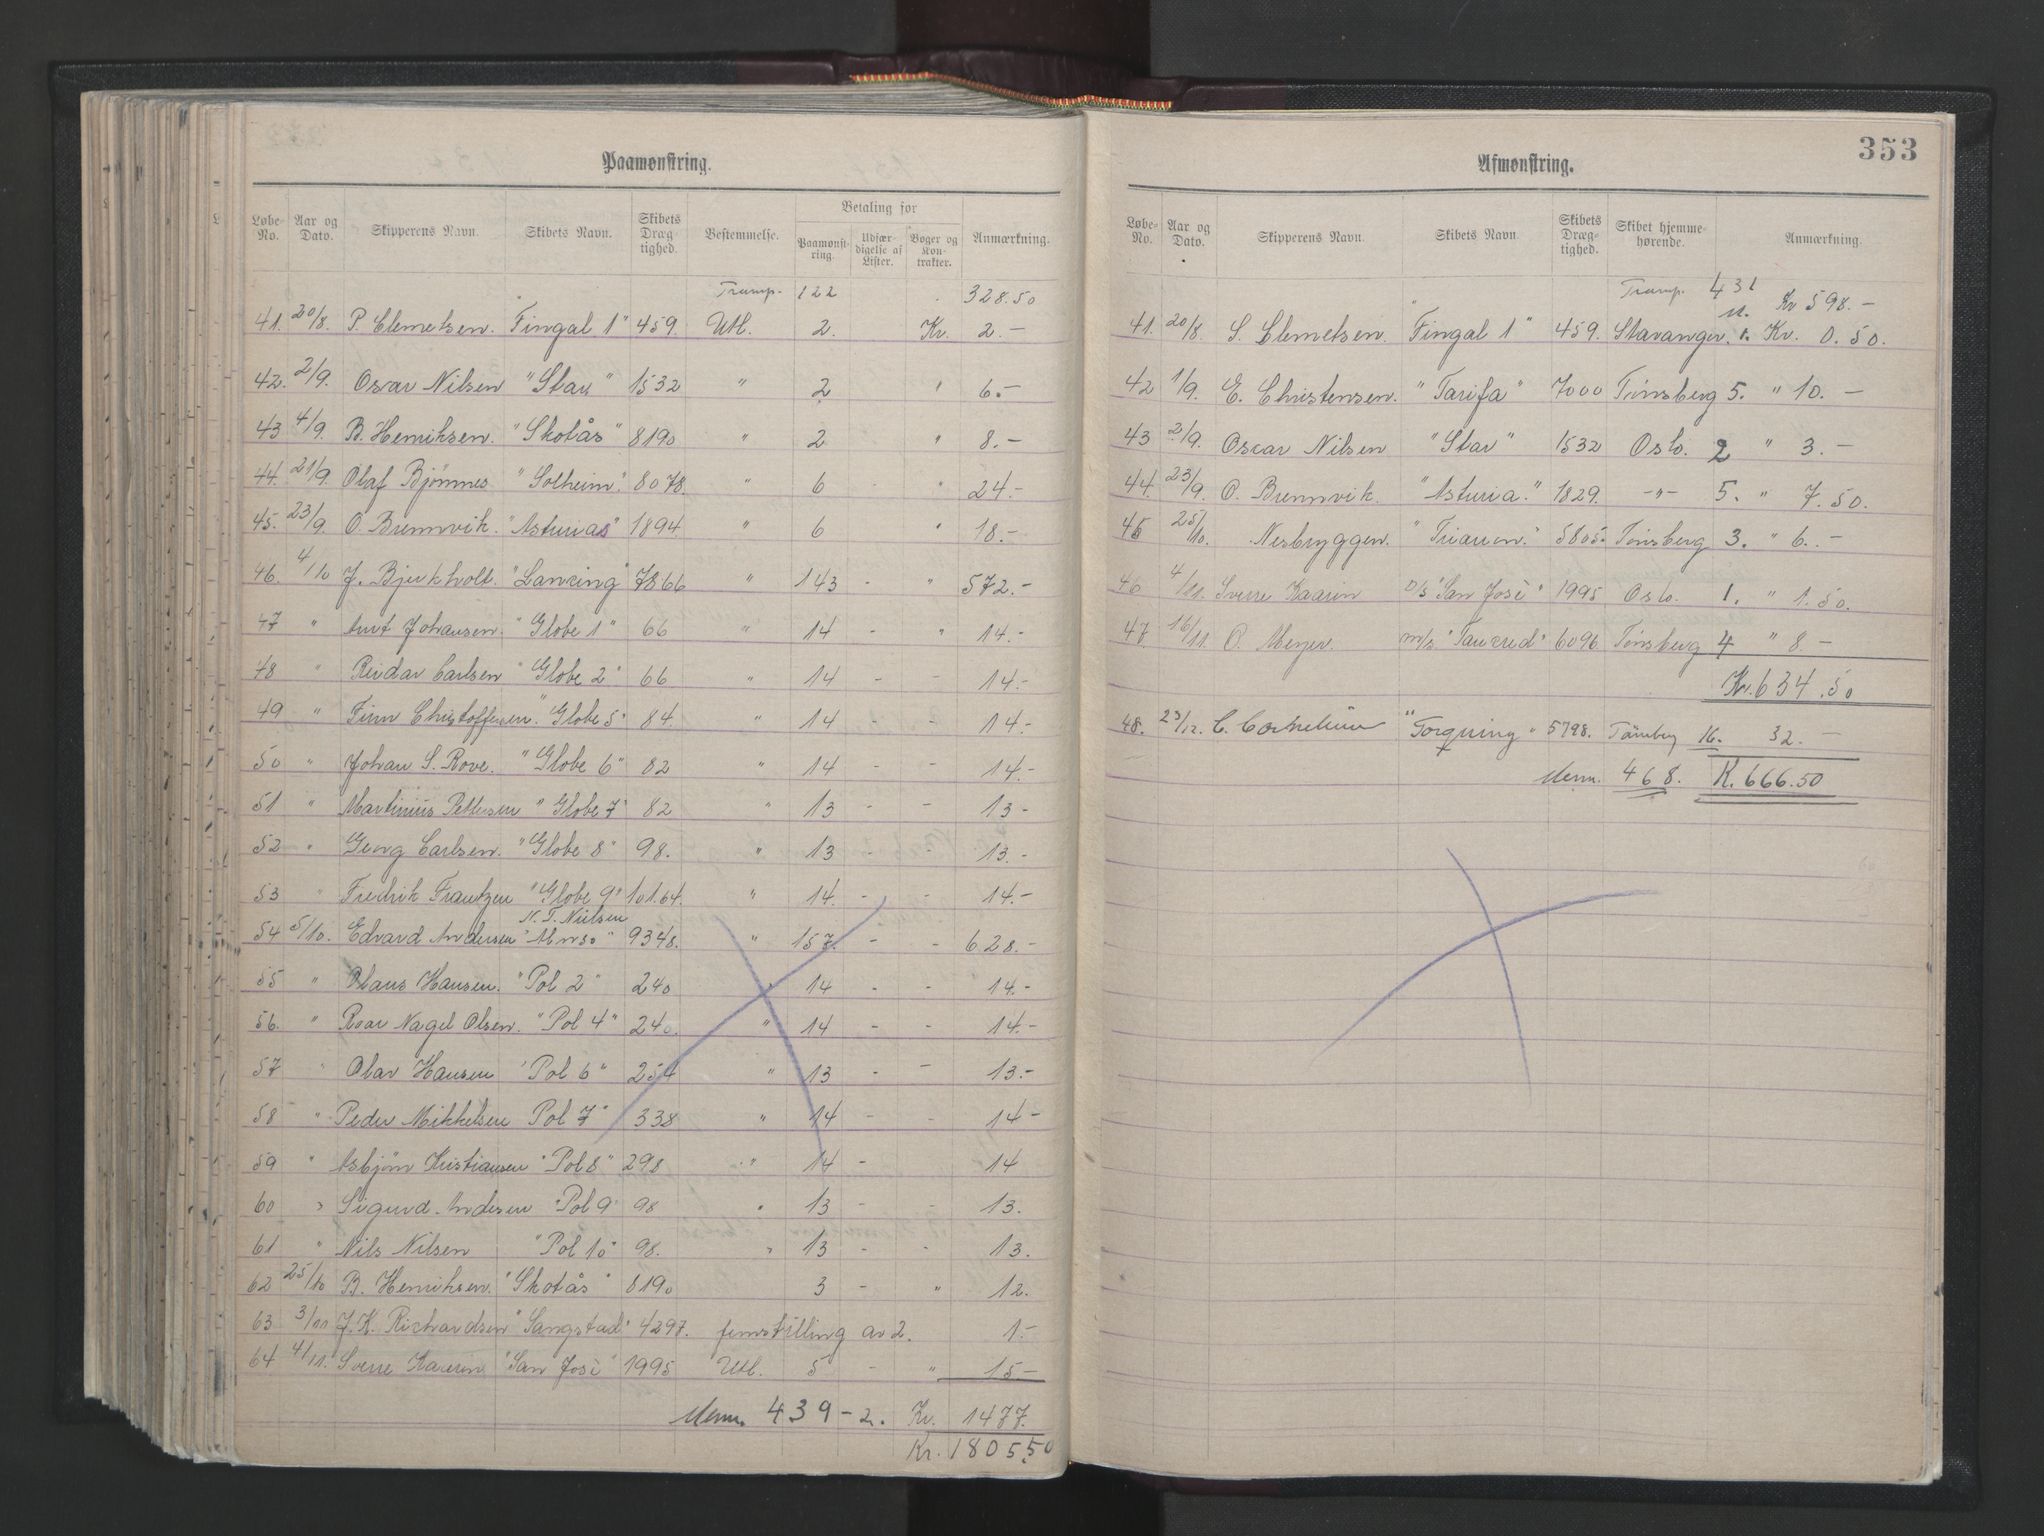 Paamønstring.
Løbe-No. Aar og Dato. Skipperens Navn. Skibets Navn. Skibets Dræg-tighed. Bestemmelse. Betaling for Paamønst-ring. Udfær-digelse af Lister. Bøger og Kon-trakter. Anmærkning.
Transp. 122 328.50
41. 20/8. P. Clemetsen. "Fingal 1" 459. Utl. 2. Kr. 2.-
42. 2/9. Oscar Nilsen "Star" 1532 " 2 " 6.-
43 4/9. B. Henriksen. "Skotås" 8190 " 2 " 8.-
44. 21/9. Olaf Bjønnes "Solheim". 8078. " 6 - " 24.-
45. 23/9. O. Brennvik. "Asturias" 1894 " 6 " 18.-
46. 4/10 J. Bjerkholt. "Lancing" 7866 " 143 - " 572.-
47 " Anf Johansen. "Globe 1" 66 " 14 - " 14.-
48 " Reidar Carlsen "Globe 2" 66 " 14 - - 14.-
49 " Finn Christoffersen. "Globe 5" 84. " 14 - - 14.-
50 " Johan S. Rove. "Globe 6" 82 " 14 - - 14.-
51 " Martinius Pettersen "Globe 7" 82 " 13 - - 13-
52 " Georg Carlsen. "Globe 8" 98. " 13 - - 13.-
53 " Fredrik Frantzen "Globe 9" 101.64. " 14. - - 14.-
N. T. Nielsen
54 5/10. Edvard Andersen "Alonso" 9348. " 157. - - 628.-
55 " Olaus Hansen. "Pol 2" 240 " 14 - - 14.-
56. " Roar Nagel Olsen. "Pol 4" 240. " 14 - - 14.-
57 " Olav Hansen "Pol 6" 254 " 13 - - 13.-
58 " Peder Mikkelsen Pol 7" 338 " 14 - - 14-
59 " Asbjørn Kristiansen "Pol 8" 298 " 14 - 14
60 " Sigurd Andersen "Pol 9" 98 " 13 - - 13.
61 " Nils Nilsen "Pol 10" 98. " 13 - - 13.
62 25/10 B. Henriksen. "Skotås" 8190 3 - " 12.
63 3/11 J. K. Richardsen "Sangstad" 4297. femstilling av 2. 1.-
64 4/11. Sverre Kaarin "San José" 1995 Utl. 5 - " 15-
Menn. 439 - 2. Kr. 1477.
Kr. 1805.50
353
Afmønstring.
Løbe-No. Aar og Dato. Skipperens Navn. Skibets Navn Skibets Dræg-tighed. Skibet hjemme-hørende. Anmærkning.
Transp. 431 Kr 598.-
41. 20/8. S. Clemetsen. "Fingal 1" 459. Stavanger. 1. Kr. 0.50.
42 1/9. E. Christensen. "Tarifa" 7000 Tønsberg 5. " 10.-
43 2/9. Oscar Nilsen "Star" 1532 Oslo. 2 " 3.-
44. 23/9. O. Brennvik. "Asturia." 1829. -"- 5. " 7.50.
45 25/10. Nesbryggen. "Triaron." 5805. Tønsberg 3. " 6.-
46 4/11. Sverre Kaarin D/S "San José" 1995 Oslo. 1. " 1.50.
47. 16/11. O. Meyer. m/s "Tancred" 6096 Tønsberg 4 " 8-
Kr. 634.50
48. 23/12. C. Cornelius "Torquiny" 5798. Tønsberg 16. 32.-
Menn. 468. K. 666.50